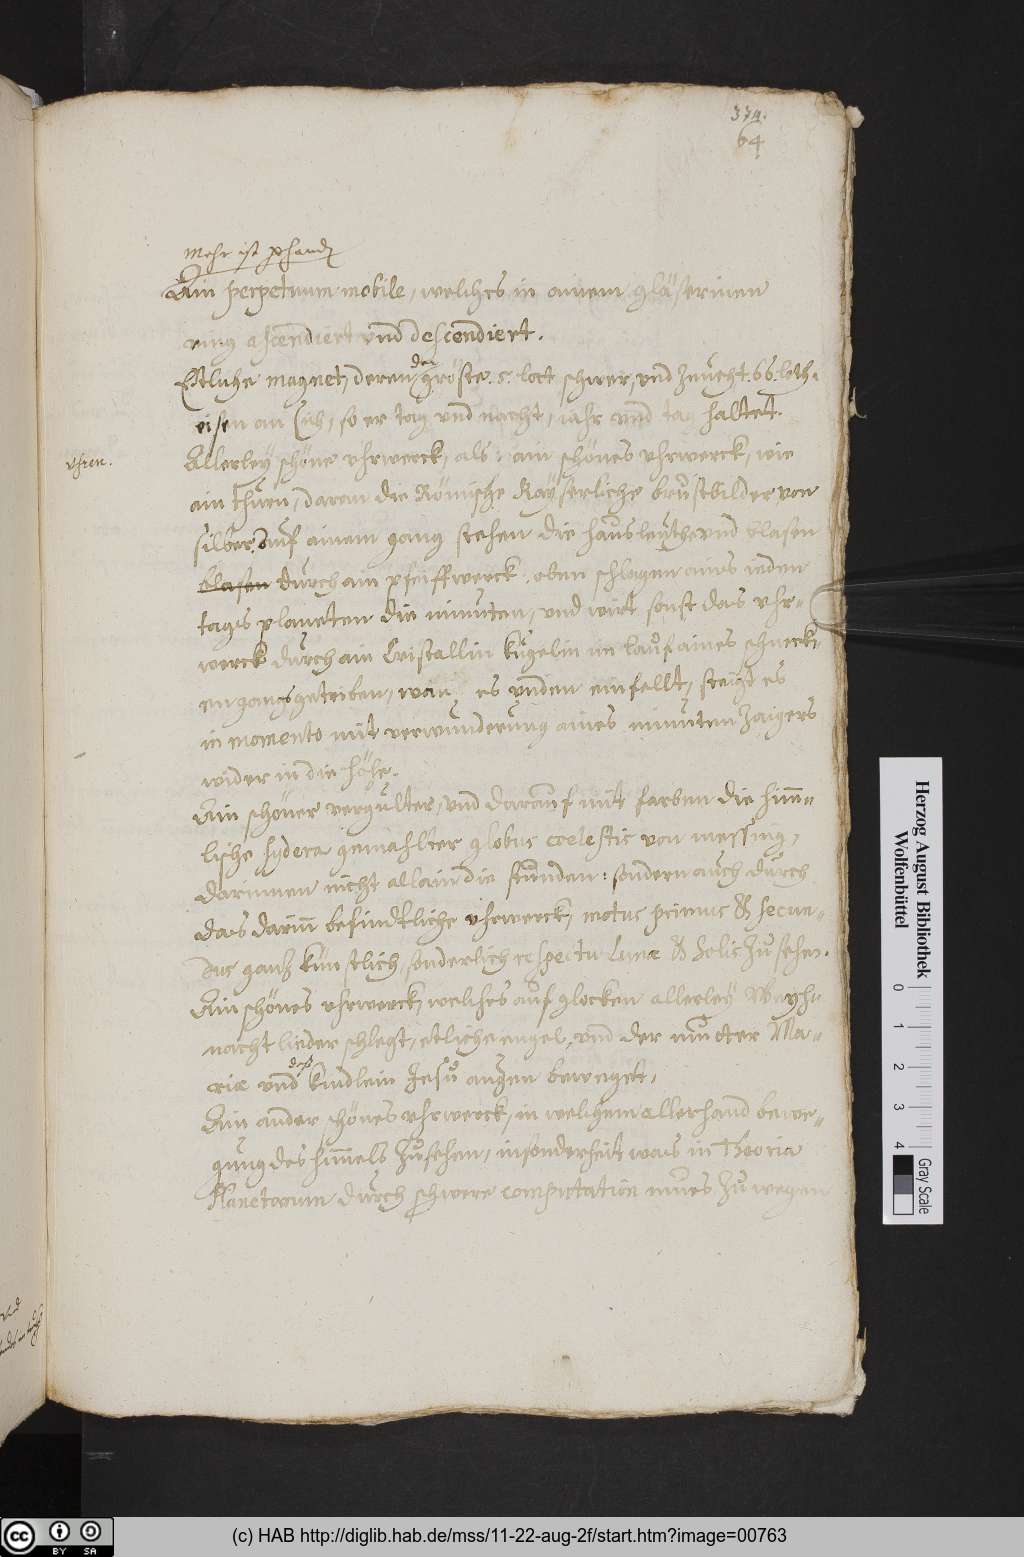 374.
64
Mehr ist verhandẽ
Ain perpetuum mobile, welches in ainem gläserinen
ring ascendiert vnd descendiert.
Etliche magnet, deren der gröste .5. lott schwer, vnd zeücht .66. loth.
eisen an sich, so er tag vnd nacht, iahr vnd tag haltet.
vhren.
Allerley schöne vhrwerck, als: ain schönes vhrwerck, wie
ain thurn, daran die Römische Kayserliche brustbilder von
silber, auf ainem gang stehen die hausleuthe vnd blasen
blasen durch ain pfeiffwerck. oben schlagen aines ieden
tags planeten die minuten, vnd wirt sonst das vhr-
werck durch ain Cristallin kugelin im lauf aines schneck-
en gangs getriben, wan es vnden einfellt, steigt es
in momento mit verwunderung aines minuten zaigers
wider in die höhe.
Ain schöner vergulter, vnd darauf mit farben die him̄-
lische sydera gemahlter globus coelestis von messing,
darinnen nicht allain die stunden: sondern auch durch
das darin̄ befindtliche vhrwerck, motus primus & secun-
dus gantz künstlich, sonderlich respectu Lunæ & Solis zu sehen.
Ain schönes vhrwerck, welches auf glocken allerley Weyh-
nacht lieder schlegt, etliche engel, vnd der mutter Ma-
riæ vnd des kindlein Jesu augen beweget.
Ain ander schönes vhrwerck, in welchem allerhand bewe-
gung des him̄els zu sehen, insonderheit was in Theoria
Planetarum durch schwere computation mues zu wegen
(c) HAB http://diglib.hab.de/mss/11-22-aug-2f/start.htm?image=00763
Herzog August Bibliothek
Wolfenbüttel
0 1 2 3 4
Gray Scale
cc BY SA